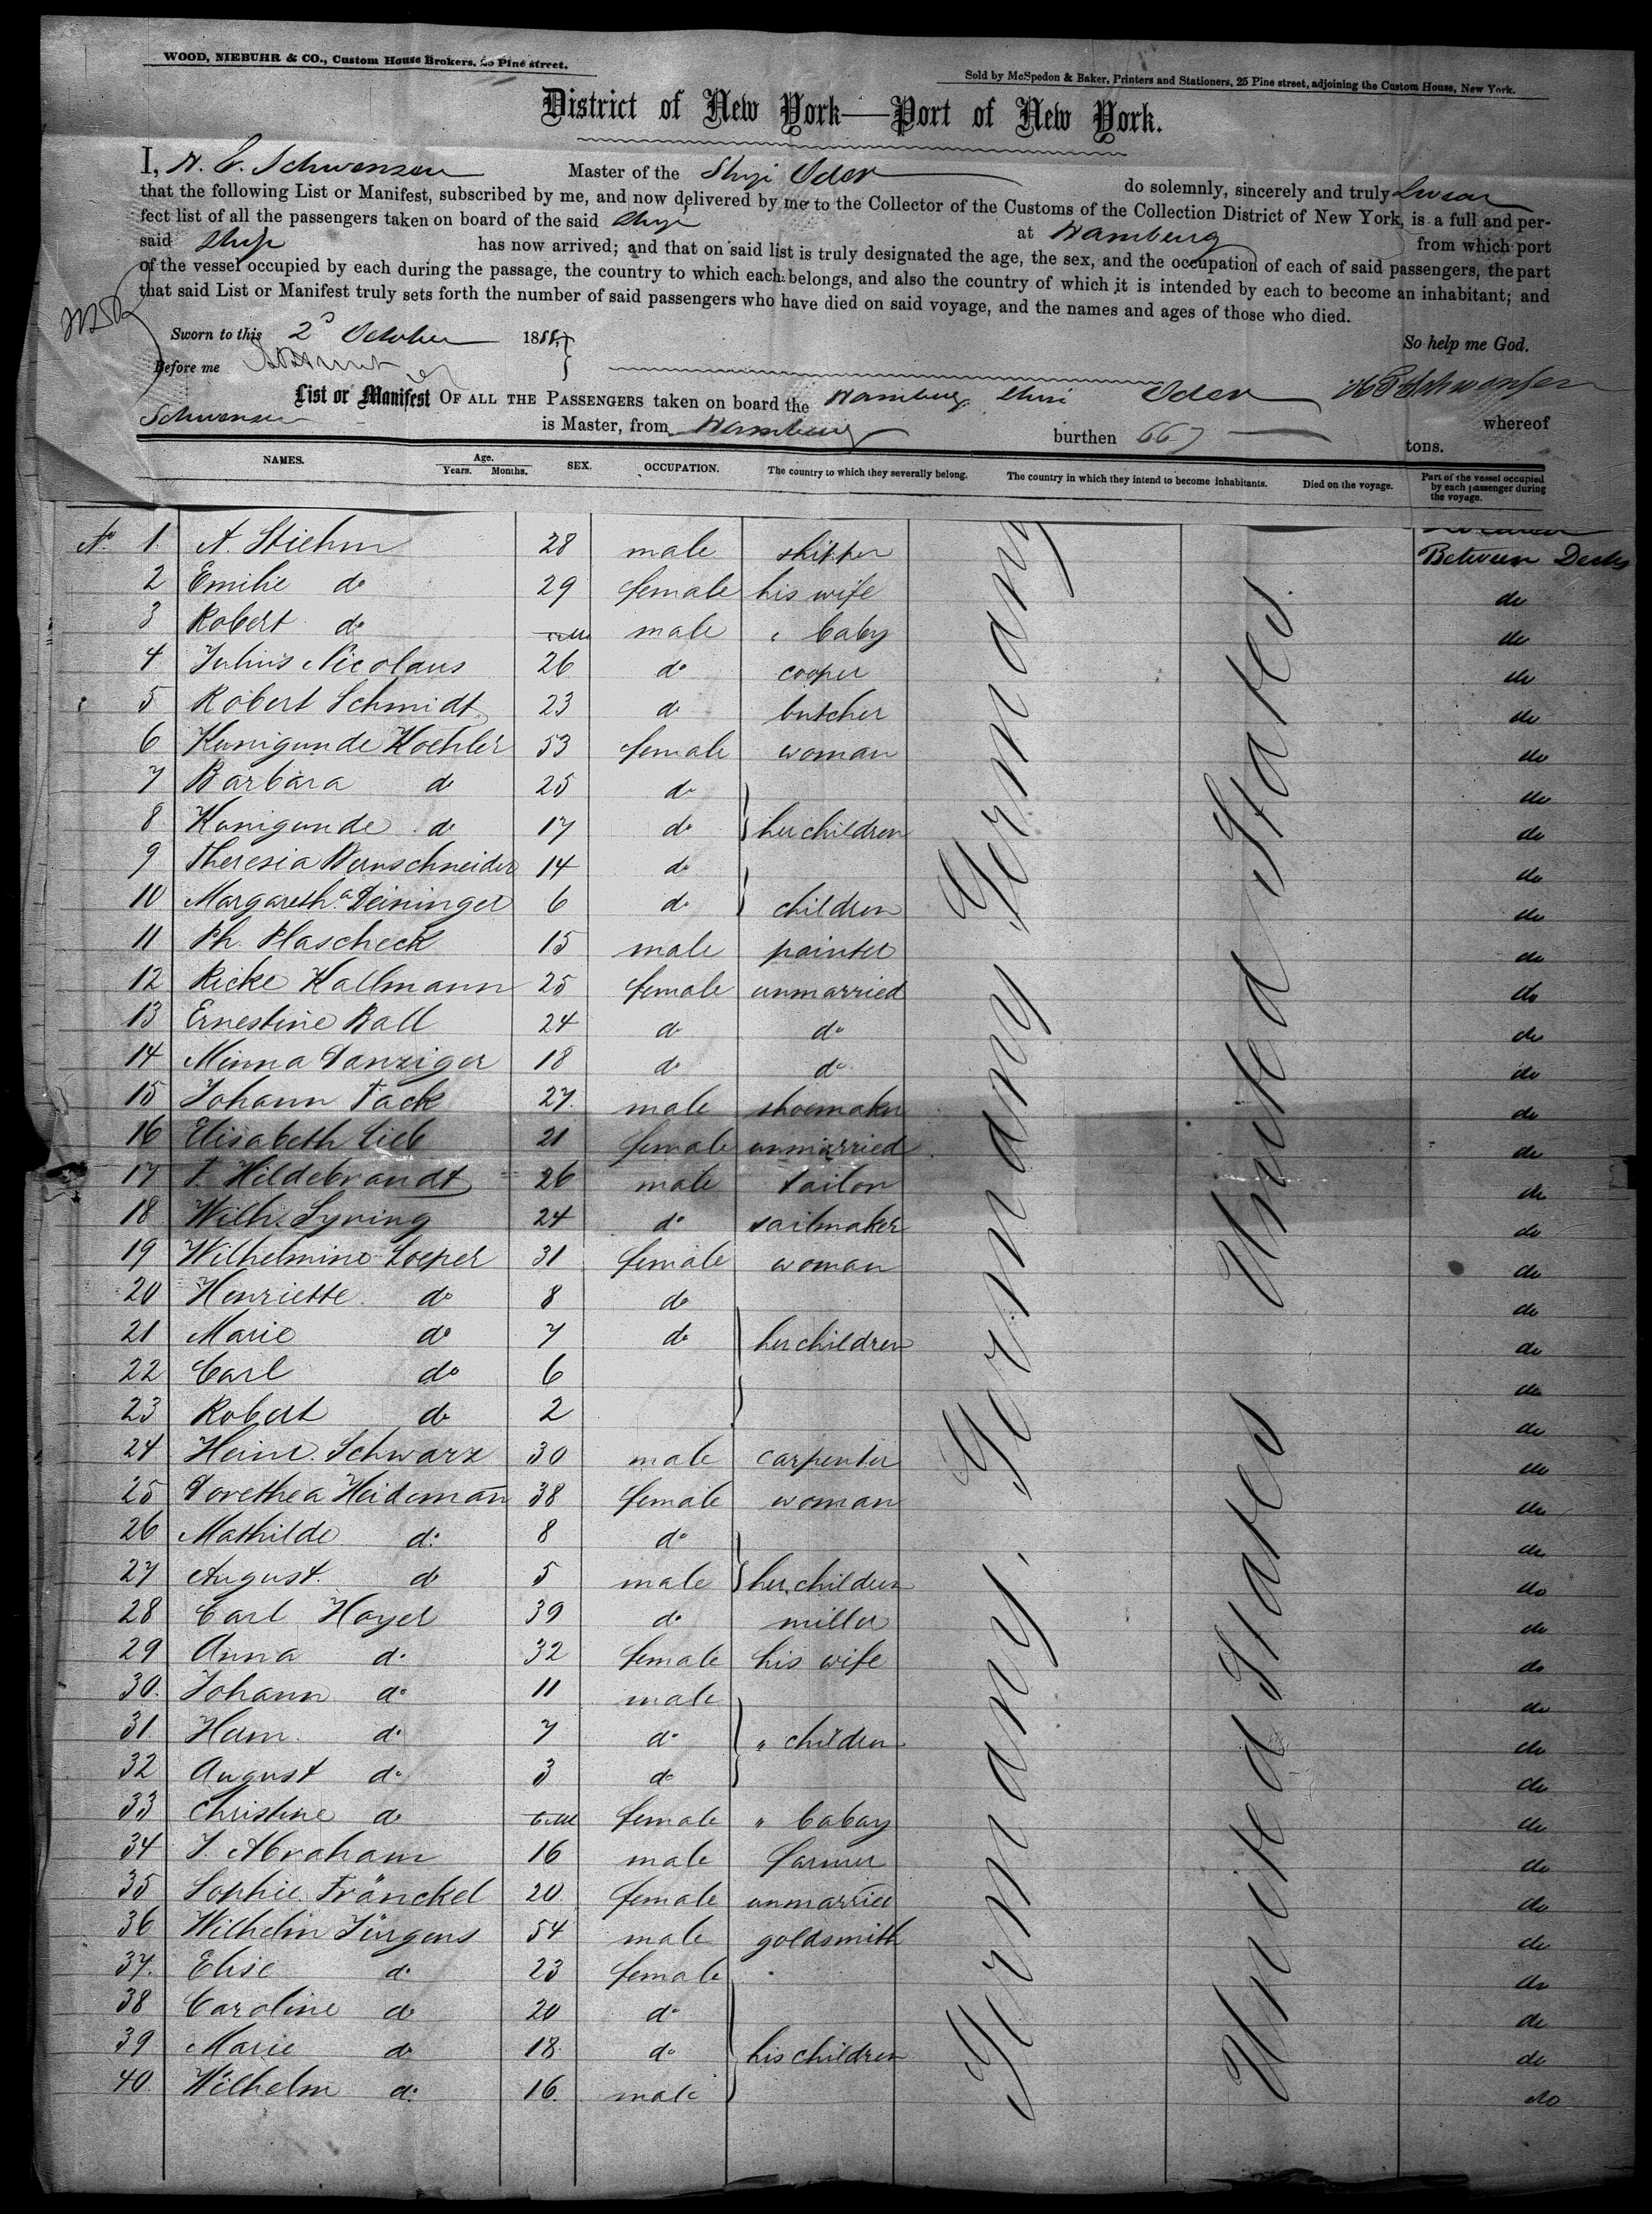 WOOD, NIEBUHR & CO., Custom House Brokers, Pine street.
Sold by McSpedon & Baker, Printers and Stationers, 25 Pine street, adjoining the Custom House, New York.
District of New York—Port of New York.
I, Schwensen Master of the Ship Oder do solemnly, sincerely and truly Swear
that the following List or Manifest, subscribed by me, and now delivered by me to the Collector of the Customs of the Collection District of New York, is a full and per-
fect list of all the passengers taken on board of the said Ship at Hamburg from which port
said Ship has now arrived; and that on said list is truly designated the age, the sex, and the occupation of each of said passengers, the part
of the vessel occupied by each during the passage, the country to which each belongs, and also the country of which it is intended by each to become an inhabitant; and
that said List or Manifest truly sets forth the number of said passengers who have died on said voyage, and the names and ages of those who died.
Sworn to this 2d October 18 So help me God.
Before me
Schwensen
List or Manifest OF ALL THE PASSENGERS taken on board the Hamburg Ship Oder whereof
Schwensen is Master, from Hamburg burthen 667 tons.
NAMES. Age. Years. Months. SEX. OCCUPATION. The country to which they severally belong. The country in which they intend to become inhabitants. Died on the voyage. Part of the vessel occupied by each passenger during the voyage.
No 1. A. Stiehm 28 male skipper Between Decks
2 Emilie do 29 female his wife do
3 Robert do male " baby do
4 Julius Nicolaus 26 do cooper do
5 Robert Schmidt 23 do butcher do
6 Kunigunde Koehler 53 female woman do
7 Barbara do 25 do do
8 Kunigunde do 17 do her children do
9 Theresia Wernschneider 14 do do
10 Margaretha Deininger 6 do children do
11 Ph. Plascheck 15 male painter do
12 Ricke Hallmann 25 female unmarried do
13 Ernestine Ball 24 do do do
14 Minna Danziger 18 do do do
15 Johann Tack 27. male shoemaker do
16 Elisabeth Lieb 21 female unmarried do
17 F. Hildebrandt 26 male tailor do
18 Wilh. Syring 24 do sailmaker do
19 Wilhelmine Loeper 31 female woman do
20 Henriette do 8 do do
21 Marie do 7 do her children do
22 Carl do 6 do
23 Robert do 2 do
24 Heinr. Schwarz 30 male carpenter do
25 Dorethea Heideman 38 female woman do
26 Mathilde do 8 do do
27 August do 5 male her children do
28 Carl Hoyer 39 do miller do
29 Anna do 32 female his wife do
30. Johann do 11 male do
31. Ham. do 7 do " children do
32 August do 3 do do
33 Christine do female " babay do
34 J. Abraham 16 male farmer do
35 Sophie Fränckel 20. female unmarried do
36 Wilhelm Jürgens 54 male goldsmith do
37. Elise do 23 female do
38 Caroline do 20 do do
39 Marie do 18. do his children do
40. Wilhelm do 16. male do
Germany. Germany Germany
United States United States.